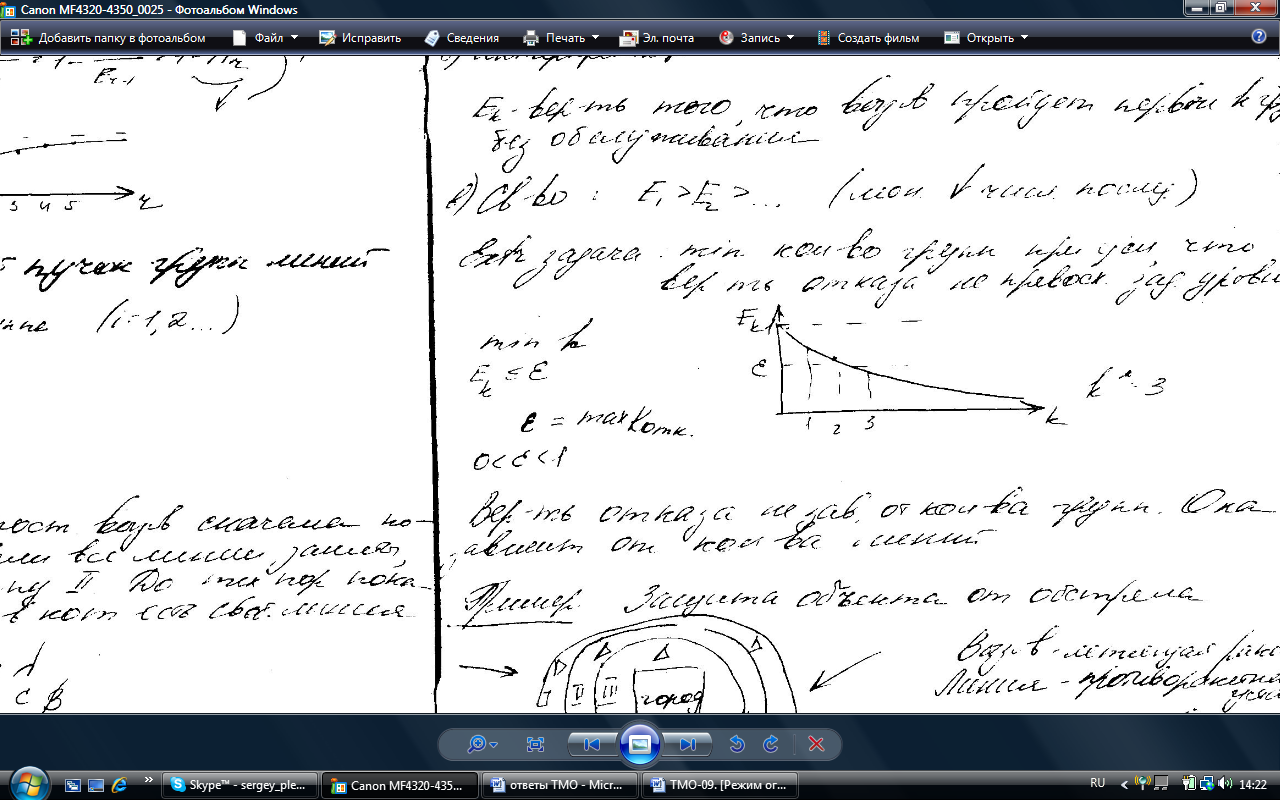 Canon MF4320-4350_0025 - Фотоальбом Windows
Добавить папку в фотоальбом Файл Исправить Сведения Печать Эл. почта Запись Создать фильм Открыть
3 4 5 r
пучок групп линий
(i=1,2...)
вызв сначала по-
все линии заняты,
II. До тех пор пока
в кот есть своб. линия
C
Ek - вер-ть того, что вызв пройдет первых k гру
без обслуживания
в) Св-во : E1 > E2 > ... (мон ↓ числ послед)
задача : min кол-во групп при усл, что
вер-ть отказа не превосх. зад. уровн
min k
Ek ≤ ε
ε = max Kотк.
0 < ε < 1
Ek 1
ε
1 2 3 k
k* = 3
Вер-ть отказа не зав. от кол-ва групп. Она
зависит от кол-ва линий
Пример. Защита объекта от обстрела
I II III город
Вызов - летящая
Линия - противоракетная
Skype™ - sergey_ple... Canon MF4320-435... ответы ТМО - Micr... ТМО-09. [Режим ог... RU 14:22